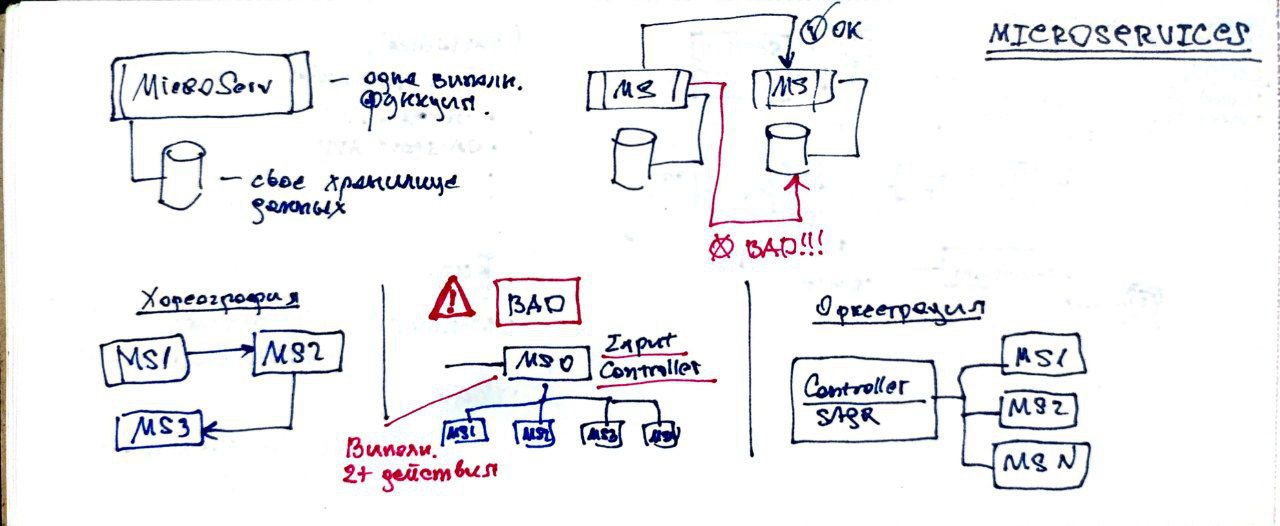 MICROSERVICES
MicroServ
— одна выполн.
функция.
— свое хранилище
данных
MS
MS
OK
BAD!!!
Хореография
MS1
MS2
MS3
!
BAD
MS0
Input
Controller
MS1
MS2
MS3
Выполн.
2+ действия
Оркестрация
Controller
MS1
MS2
MS N